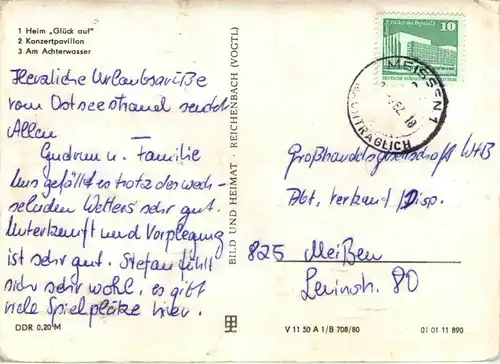 1 Heim „Glück auf"
2 Konzertpavillon
3 Am Achterwasser
Herzliche Urlaubsgrüße
vom Ostseestrand sendet
Allen
Gudrun u. Familie
Uns gefällt es trotz des wech-
selnden Wetters sehr gut.
Unterkunft und Verpflegung
ist sehr gut. Stefan fühlt
sich sehr wohl, es gibt
viele Spielplätze hier.
DDR 0,20 M
BILD UND HEIMAT · REICHENBACH (VOGTL)
10
Palast der Republik
MEISSEN 1
NACHTRÄGLICH
Großhandelsgesellschaft WtB
Abt. Versand/Disp.
825 Meißen
Leninstr. 80
V 11 50 A 1/B 708/80
01 01 11 890